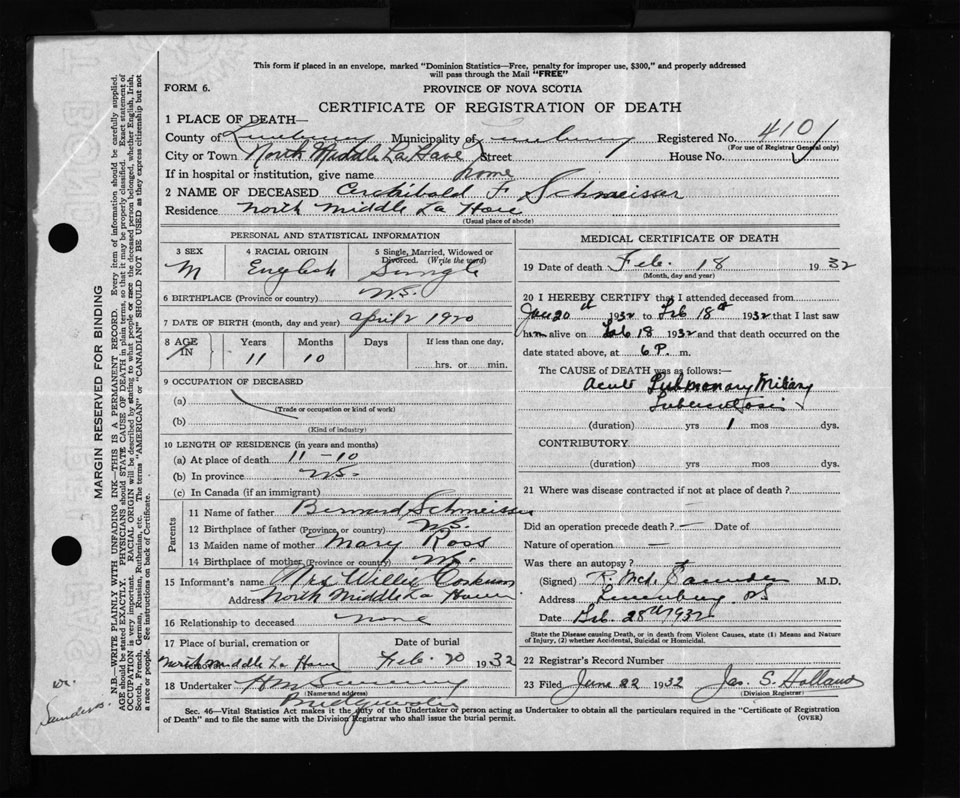 This form if placed in an envelope, marked "Dominion Statistics—Free, penalty for improper use, $300," and properly addressed
will pass through the Mail "FREE"
FORM 6.
PROVINCE OF NOVA SCOTIA
CERTIFICATE OF REGISTRATION OF DEATH
1 PLACE OF DEATH—
County of Lunenburg Municipality of Lunenburg Registered No. 410
(For use of Registrar General only)
City or Town North Middle La Have Street House No.
If in hospital or institution, give name home
2 NAME OF DECEASED Archibald F Schmeisser
Residence North Middle La Have
(Usual place of abode)
PERSONAL AND STATISTICAL INFORMATION
3 SEX 4 RACIAL ORIGIN 5 Single, Married, Widowed or
Divorced. (Write the word)
M English Single
6 BIRTHPLACE (Province or country) N.S.
7 DATE OF BIRTH (month, day and year) April 2 1920
8 AGE IN Years Months Days If less than one day,
11 10 hrs. or min.
9 OCCUPATION OF DECEASED
(a)
(Trade or occupation or kind of work)
(b)
(Kind of industry)
10 LENGTH OF RESIDENCE (in years and months)
(a) At place of death 11 – 10
(b) In province N.S.
(c) In Canada (if an immigrant)
Parents
11 Name of father Bernard Schmeisser
12 Birthplace of father (Province, or country) N.S.
13 Maiden name of mother Mary Ross
14 Birthplace of mother (Province, or country) N.S.
15 Informant's name Mrs Willis
Address North Middle La Have
16 Relationship to deceased none
17 Place of burial, cremation or Date of burial
North Middle La Have Feb. 20 1932
18 Undertaker
(Name and address)
Bridgewater
MEDICAL CERTIFICATE OF DEATH
19 Date of death Feb. 18 1932
(Month, day and year)
20 I HEREBY CERTIFY that I attended deceased from
Jan 20th 1932 to Feb 18th 1932 that I last saw
him alive on Feb 18 1932 and that death occurred on
the date stated above, at 6 P. m.
The CAUSE OF DEATH was as follows:—
Acute Pulmonary Miliary
Tuberculosis
(duration) yrs 1 mos dys.
CONTRIBUTORY
(duration) yrs mos dys.
21 Where was disease contracted if not at place of death?
Did an operation precede death? — Date of
Nature of operation —
Was there an autopsy?
(Signed) Saunders M.D.
Address Lunenburg NS
Date Feb. 28th 1932
State the Disease causing Death, or in death from Violent Causes, state (1) Means and Nature
of Injury, (2) whether Accidental, Suicidal or Homicidal.
22 Registrar's Record Number
23 Filed June 22 1932 Jas. S. Holland
(Division Registrar)
Sec. 46—Vital Statistics Act makes it the duty of the Undertaker or person acting as Undertaker to obtain all the particulars required in the "Certificate of Registration
of Death" and to file the same with the Division Registrar who shall issue the burial permit.
(OVER)
MARGIN RESERVED FOR BINDING
N.B.—WRITE PLAINLY WITH UNFADING INK—THIS IS A PERMANENT RECORD. Every item of information should be carefully supplied.
AGE should be stated EXACTLY. PHYSICIANS should STATE CAUSE OF DEATH in plain terms, so that it may be properly classified. Exact statement of
OCCUPATION is very important. RACIAL ORIGIN will be described by stating to what people or race the deceased person belonged, whether English, Irish,
Scotch, French, German, Russian, Ruthenian, etc. The terms "AMERICAN" or "CANADIAN" SHOULD NOT BE USED as they express citizenship but not
a race or people. See instructions on back of Certificate.
Dr.
Saunders.